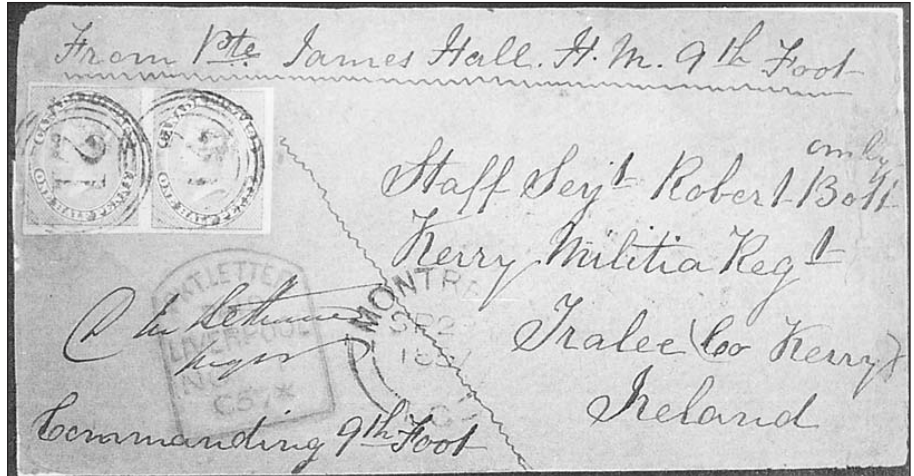 From Pte. James Hall. H. M. 9th Foot
Staff Serjt Robert Bott
Kerry Militia Regt
Tralee (Co Kerry)
Ireland
Commanding 9th Foot
21
21
PKT. LETTER
LIVERPOOL
C57*
MONTR
SP 2